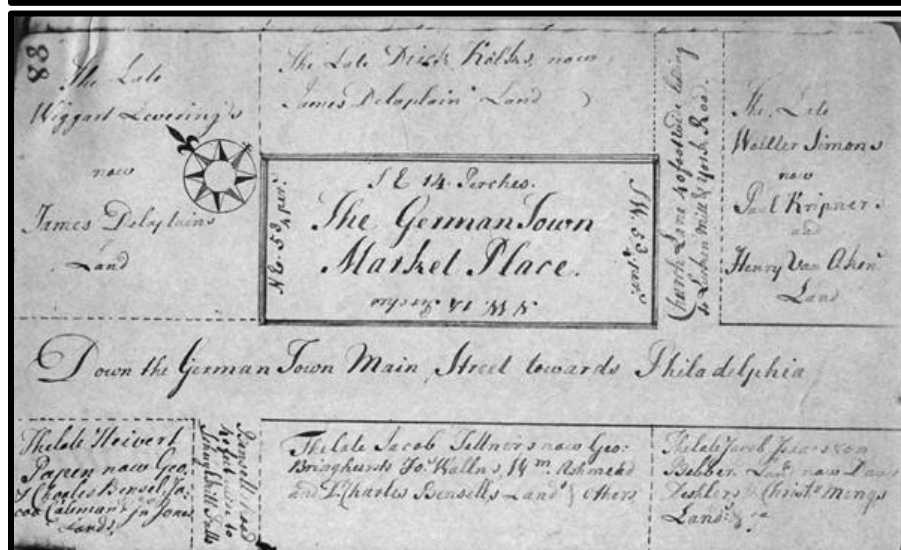 88
The Late
Wiggart Levering's
now
James Delaplains
Land
The Late Dirck Kolks, now
James Delaplain' Land
S E 14. Perches.
The GermanTown
Market Place.
N W. 14 Perches
N E. 5¾ per.
S W. 5¾ per.
Church Lane 40 foot wide leading
to Luken Mill & York Road.
The Late
Wallter Simons
now
Paul Kripners
and
Henry Van Aken'
Land
Down the German Town Main Street towards Philadelphia
The late Heivert
Papen now Geo.
& Charles Bensel Ja-
cob Coleman Jn Jones
Lands,
Bensell Road
to Schuylkill Falls
The late Jacob Tellners now Geo:
Bringhursts Jo. Wallns, Wm. Ashmead
and D. Charles Bensells Land & others
The late Jacob Isaacs von
Bebber Land now David
Deshlers & Christr. Mengs
Land